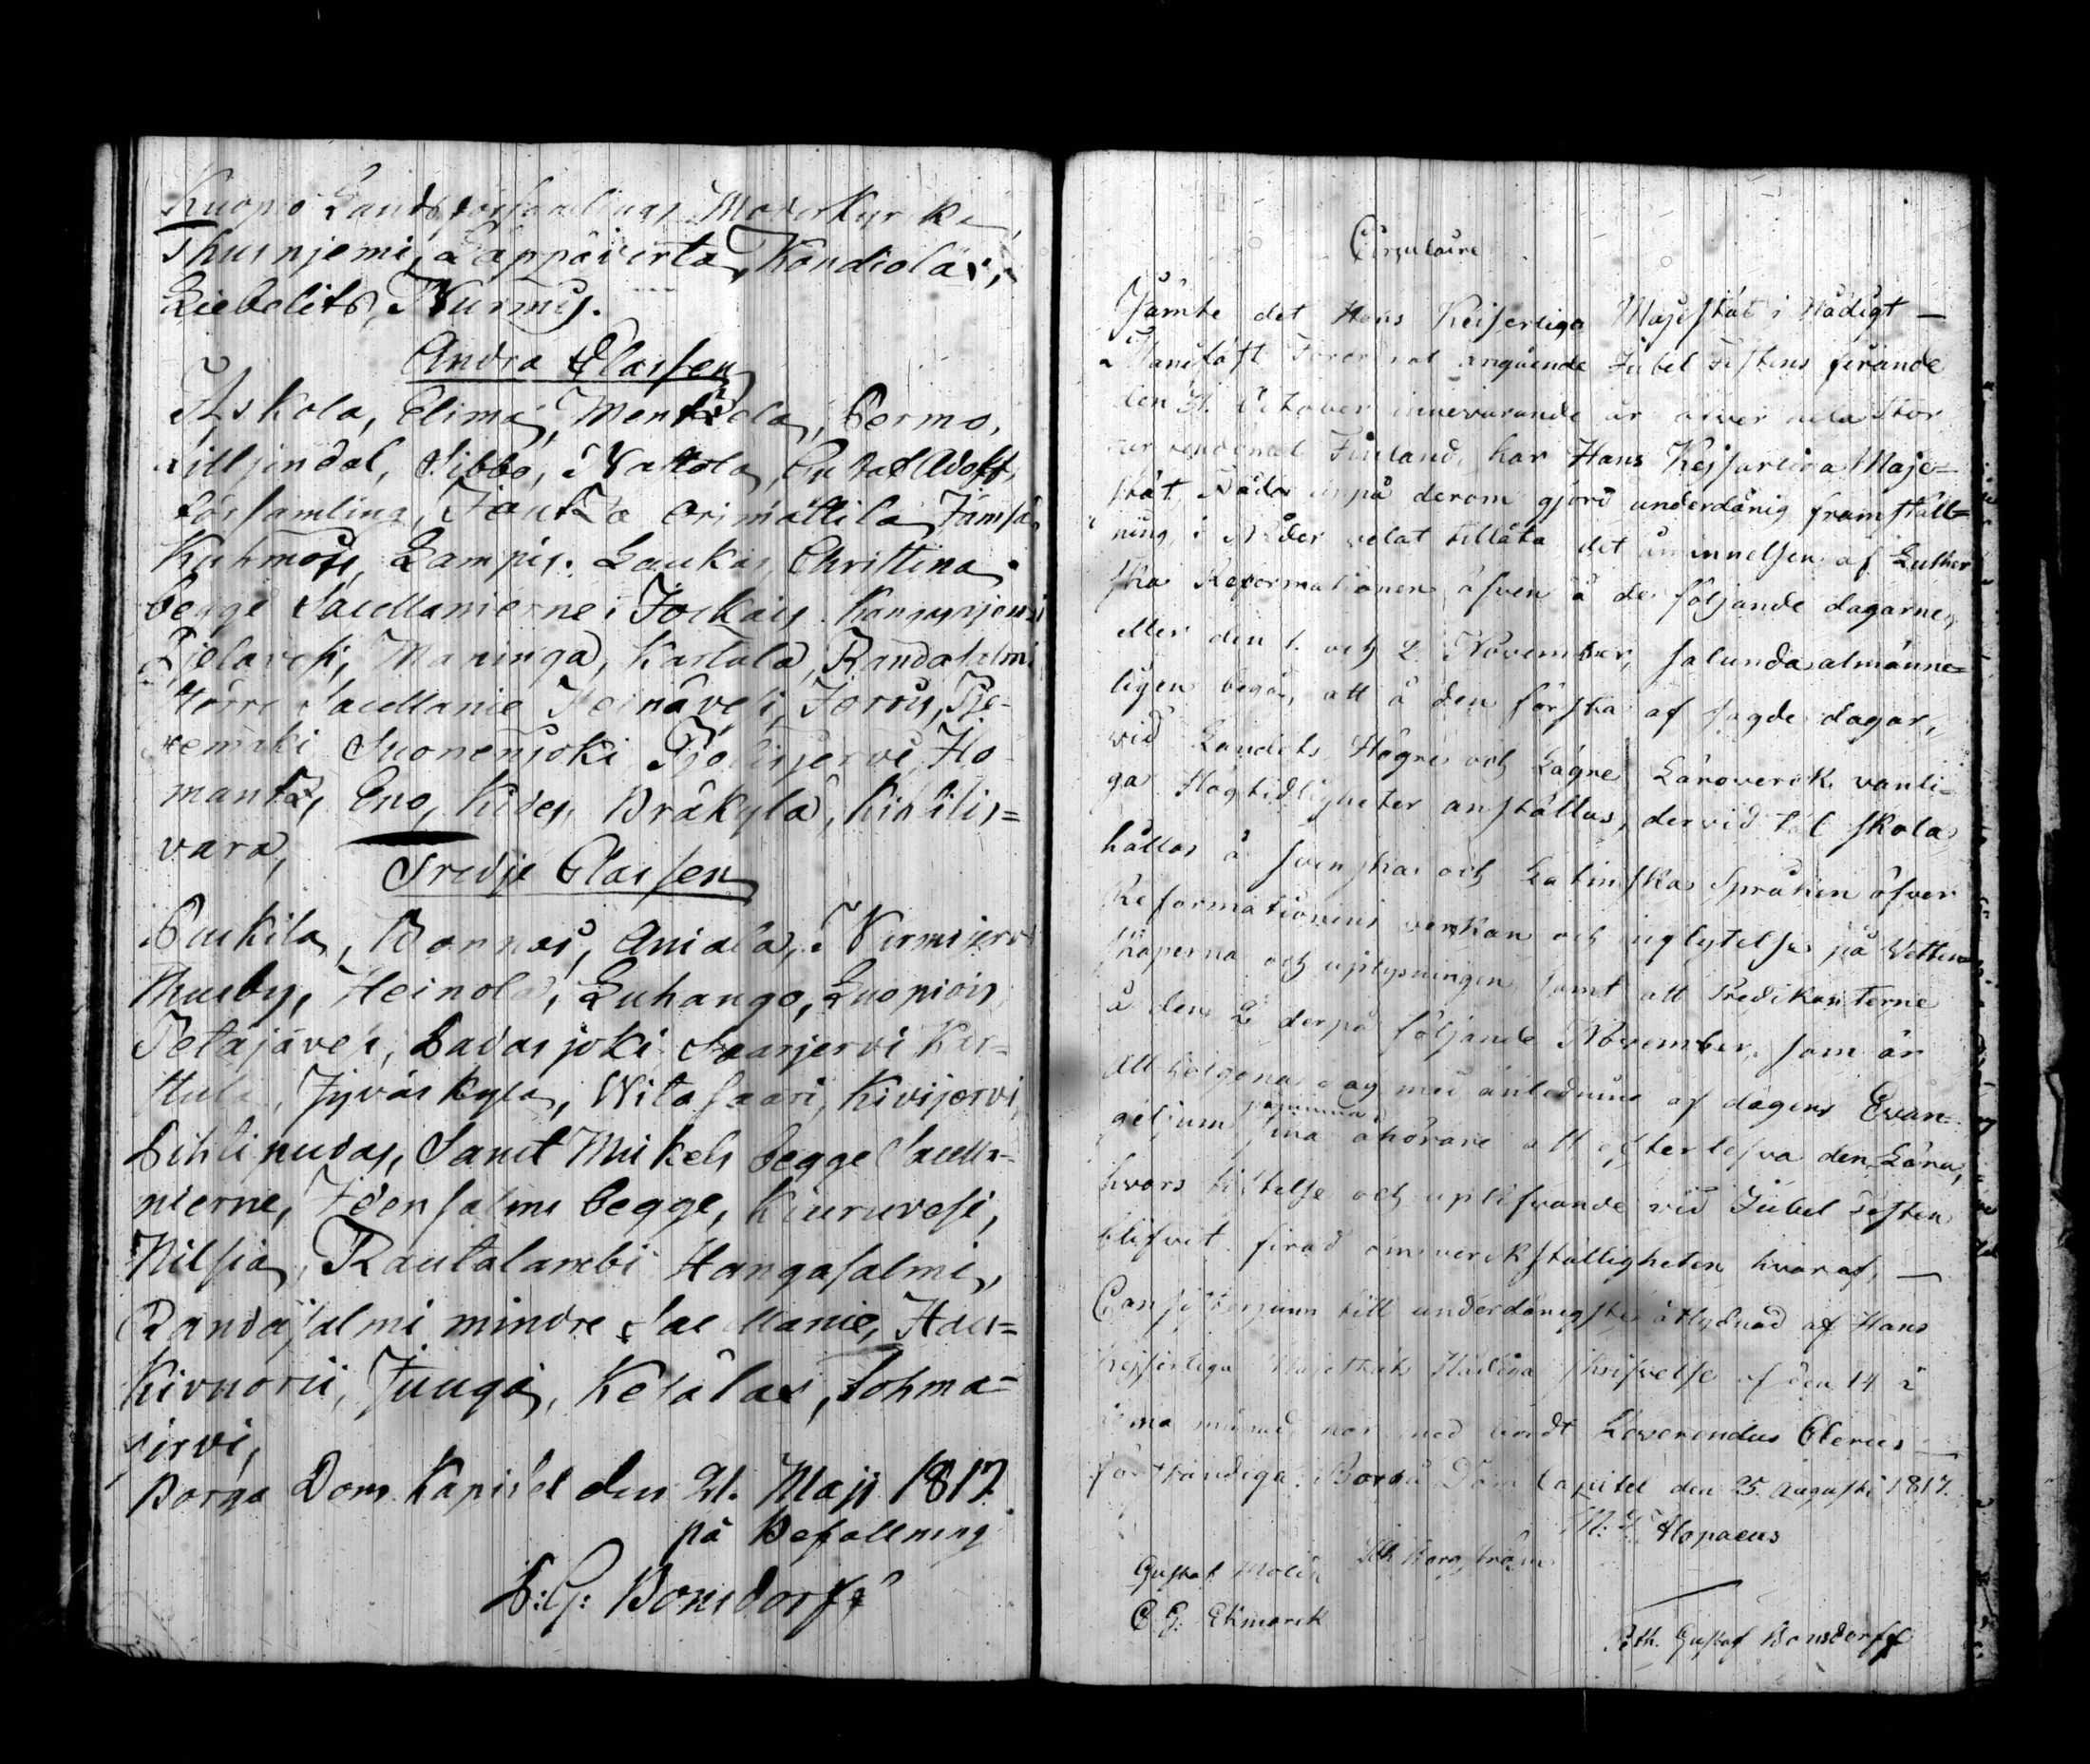 Kuopio Landsförsamlings Moderkyrka,
Thusnjemi, Lappäverta, Kondiolax,
Liebelits, Nurmis.
Andra Classen
Askola, Elimä, Mentzela, Permo,
Lilljendal, Sibbo, Nastola, Gustaf Adolfs
församling, Jautza Orimattila, Jämsä,
Kuhmois, Lampis. Laukas, Christina
begge Sacellanierne i Jockas. Kangasnjemi
Pjelavesi, Maninga, Kartula, Randasalmi
större Sacellanie Heinävesi, Jorois, Pje-
xemäki Suonenjoki Pjelisjervi, Ilo-
mantz, Eno, Kides, Bräkylä, Kihtilis=
vara,
Tredje Classen
Puckila, Bornäs, Aniala, Nurmijervi
Thusby, Heinola, Luhango, Luopiois
Petäjävesi, Padasjoki Saarjervi Kar-
stula, Jyväskyla, Witasaari, Kivijervi,
Pihlipudas, Sanct Mikels begge Sacella-
nierne, Idensalmi begge, Kiuruvesi,
Nilsiä, Rautalambi Hangasalmi,
Randasalmi mindre Sacellanie, Hau-
kivuori, Juuga, Kesälax, Tohma=
jervi,
Borgå Dom Kapitel den 21. Maji 1817.
på Befallning
P: G: Bonsdorff
Circulaire
Jämte det Hans Keiserliga Majestät i Nådigt –
Manifest Förordnat angående Jubel Festens firande
den 31. October innevarande år öfver hela Stor
Finland, har Hans Kejserliga Maje=
stät Nådr uppå derom gjord underdånig framställ=
ning, i Nåder velat tillåta det åminnelsen af Luther
ska Reformationen äfven å de följande dagarne,
eller den 1. och 2 November, salunda almänne=
ligen begås, att å den första af sagde dagar,
vid Landets Högre och Lägre Läroverck vanli-
ga Högtidligheter anställas, dervid tal skola
hållas å Svenska och Latinska Språken öfver
Reformationens verkan och inflytelse på Vetten=
skaperna och uplysningen samt att Predikanterne
å den 2 derpå följande November, som är
Allhelgona dag med anledning af dagens Evan-
geljum sina åhörare att efterlefva den Lära,
hvars stiftelse och uplifvande vid Jubel Festen
blifvit firad om verckställigheten hvaraf, –
Consistorjum till underdånigste åtlydnad af Hans
Kejserliga Majestäts Nådiga skrifvelse af den 14 i
denna månad, har med bordt Reverendus Clerus –
förständiga. Borgå Dom Capitel den 25. Augusti 1817.
M: Alopaeus
Gustaf Molin Joh Borgström
C. G. Ekmarck
Pth. Gustaf Bonsdorff